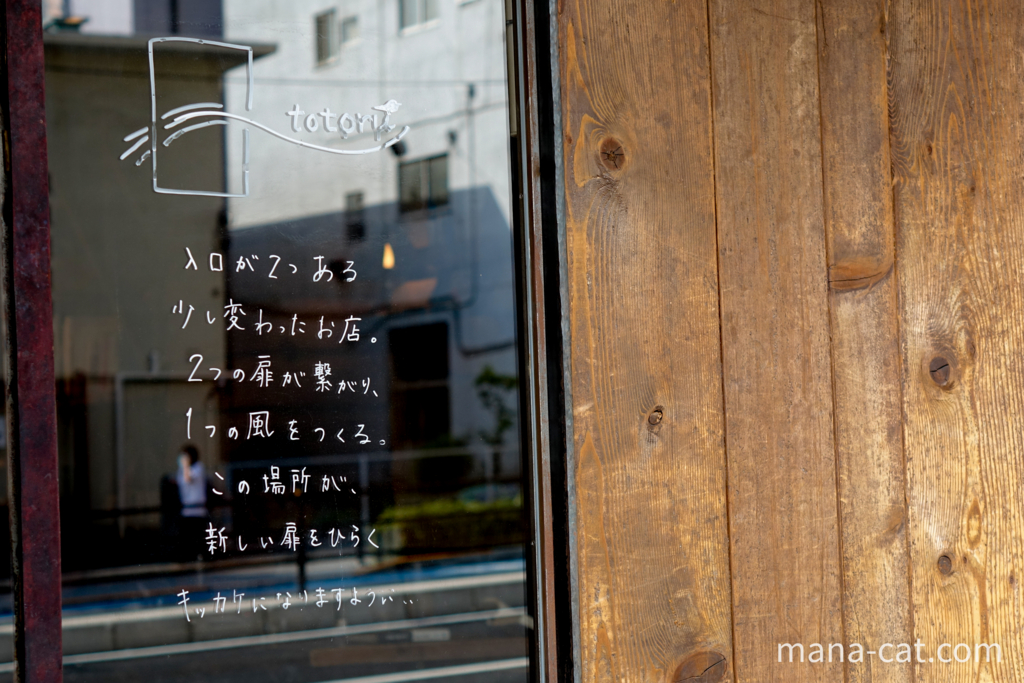 totori
入口が2つある
少し変わったお店。
2つの扉が繋がり、
1つの風をつくる。
この場所が、
新しい扉をひらく
キッカケになりますように..
mana-cat.com